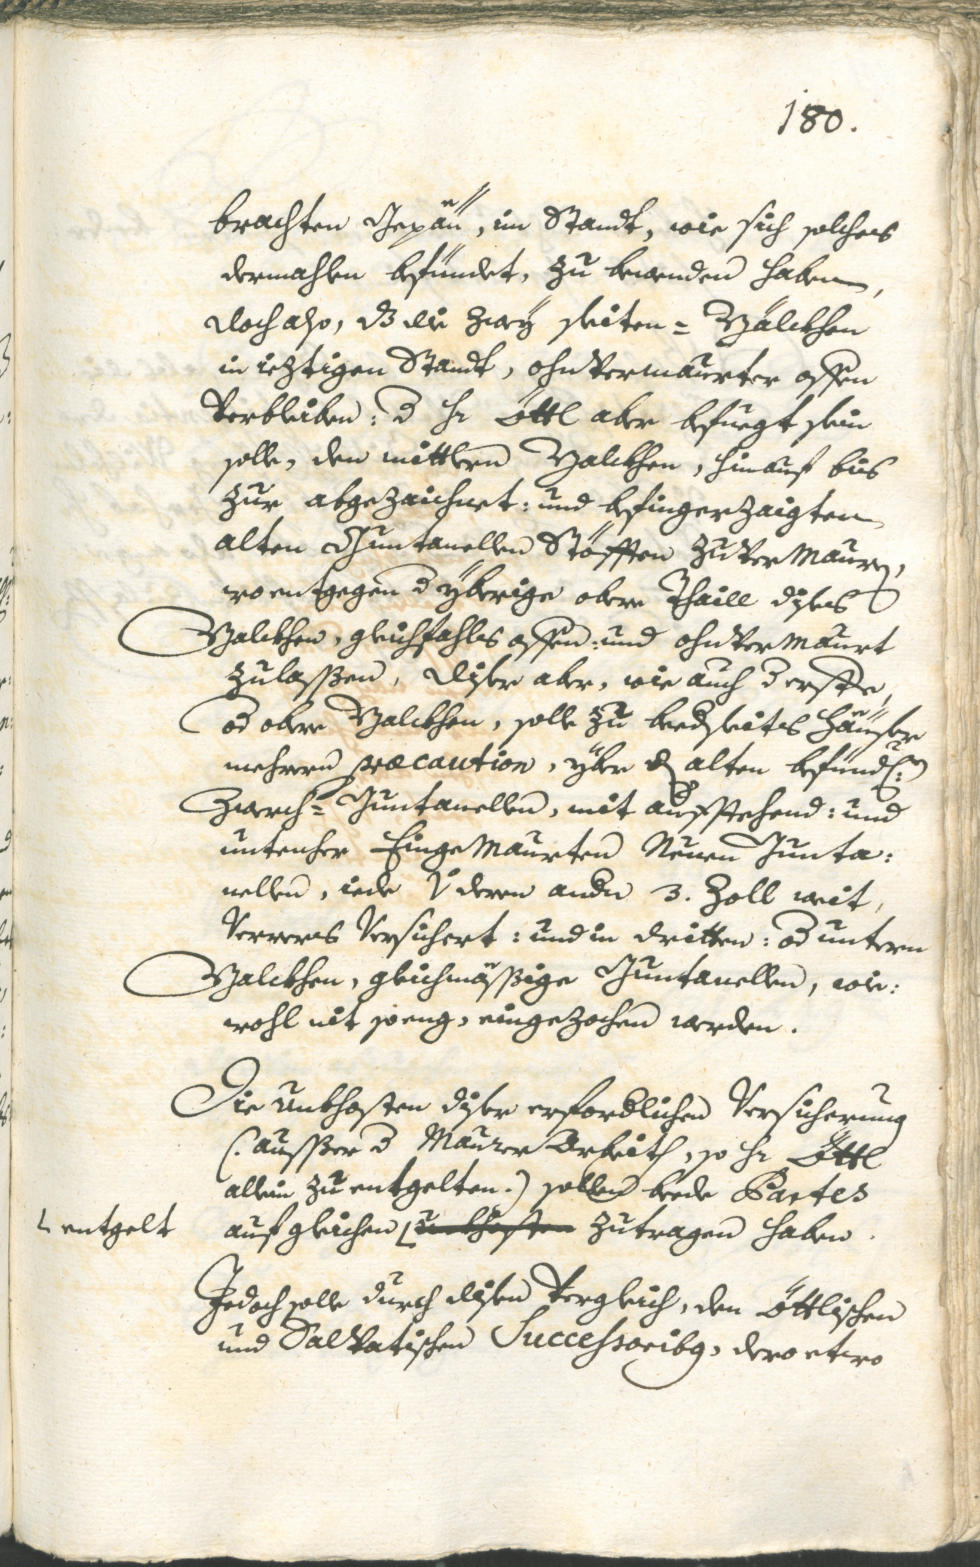 180.
brachten Gepäu, im Standt, wie sich solches
dermahlen befündet, zu bewenden haben,
doch also, dz die zwey seiten= Palckhen
in ieztigen Standt, ohnvermaurter offen
verbleiben: d H: Öttl aber befuegt sein
solle, den mittlern Palckhen, hinauf bis
zur abgezaichnet: und befingerzaigten
alten Juntanellen Stöfften zuvermaurn,
woentgegen d yberige obere Thaill dises
Palckhen, gleichfahls offen: und ohnvermaurt
zulassen, diser aber, wie auch d erste,
od obere Palckhen, solle zu beedseits Häuser
mehrern præcaution, yber d alten befündl:
zwerch= Juntanellen, mit aufstehend: und
untenher Eingemaurten Neuen Junta:
nellen, iede v deren andn 3. Zoll weit,
verrers versichert: und in dritten: od untern
Palckhen, gleichmässige Juntanellen, wie:
wohl nit so eng, eingezochen werden.
Die Unkhosten diser erfordlichen Versicherung
(: ausser d Maurer Arbeith, so H: Öttl
allein zu entgelten:) sollen beede Partes
auf gleichen unkhosten zutragen haben.
entgelt
Jedoch solle durch disen Vergleich, den Öttlischen
und Salvatischen Successoribg, dero etwo